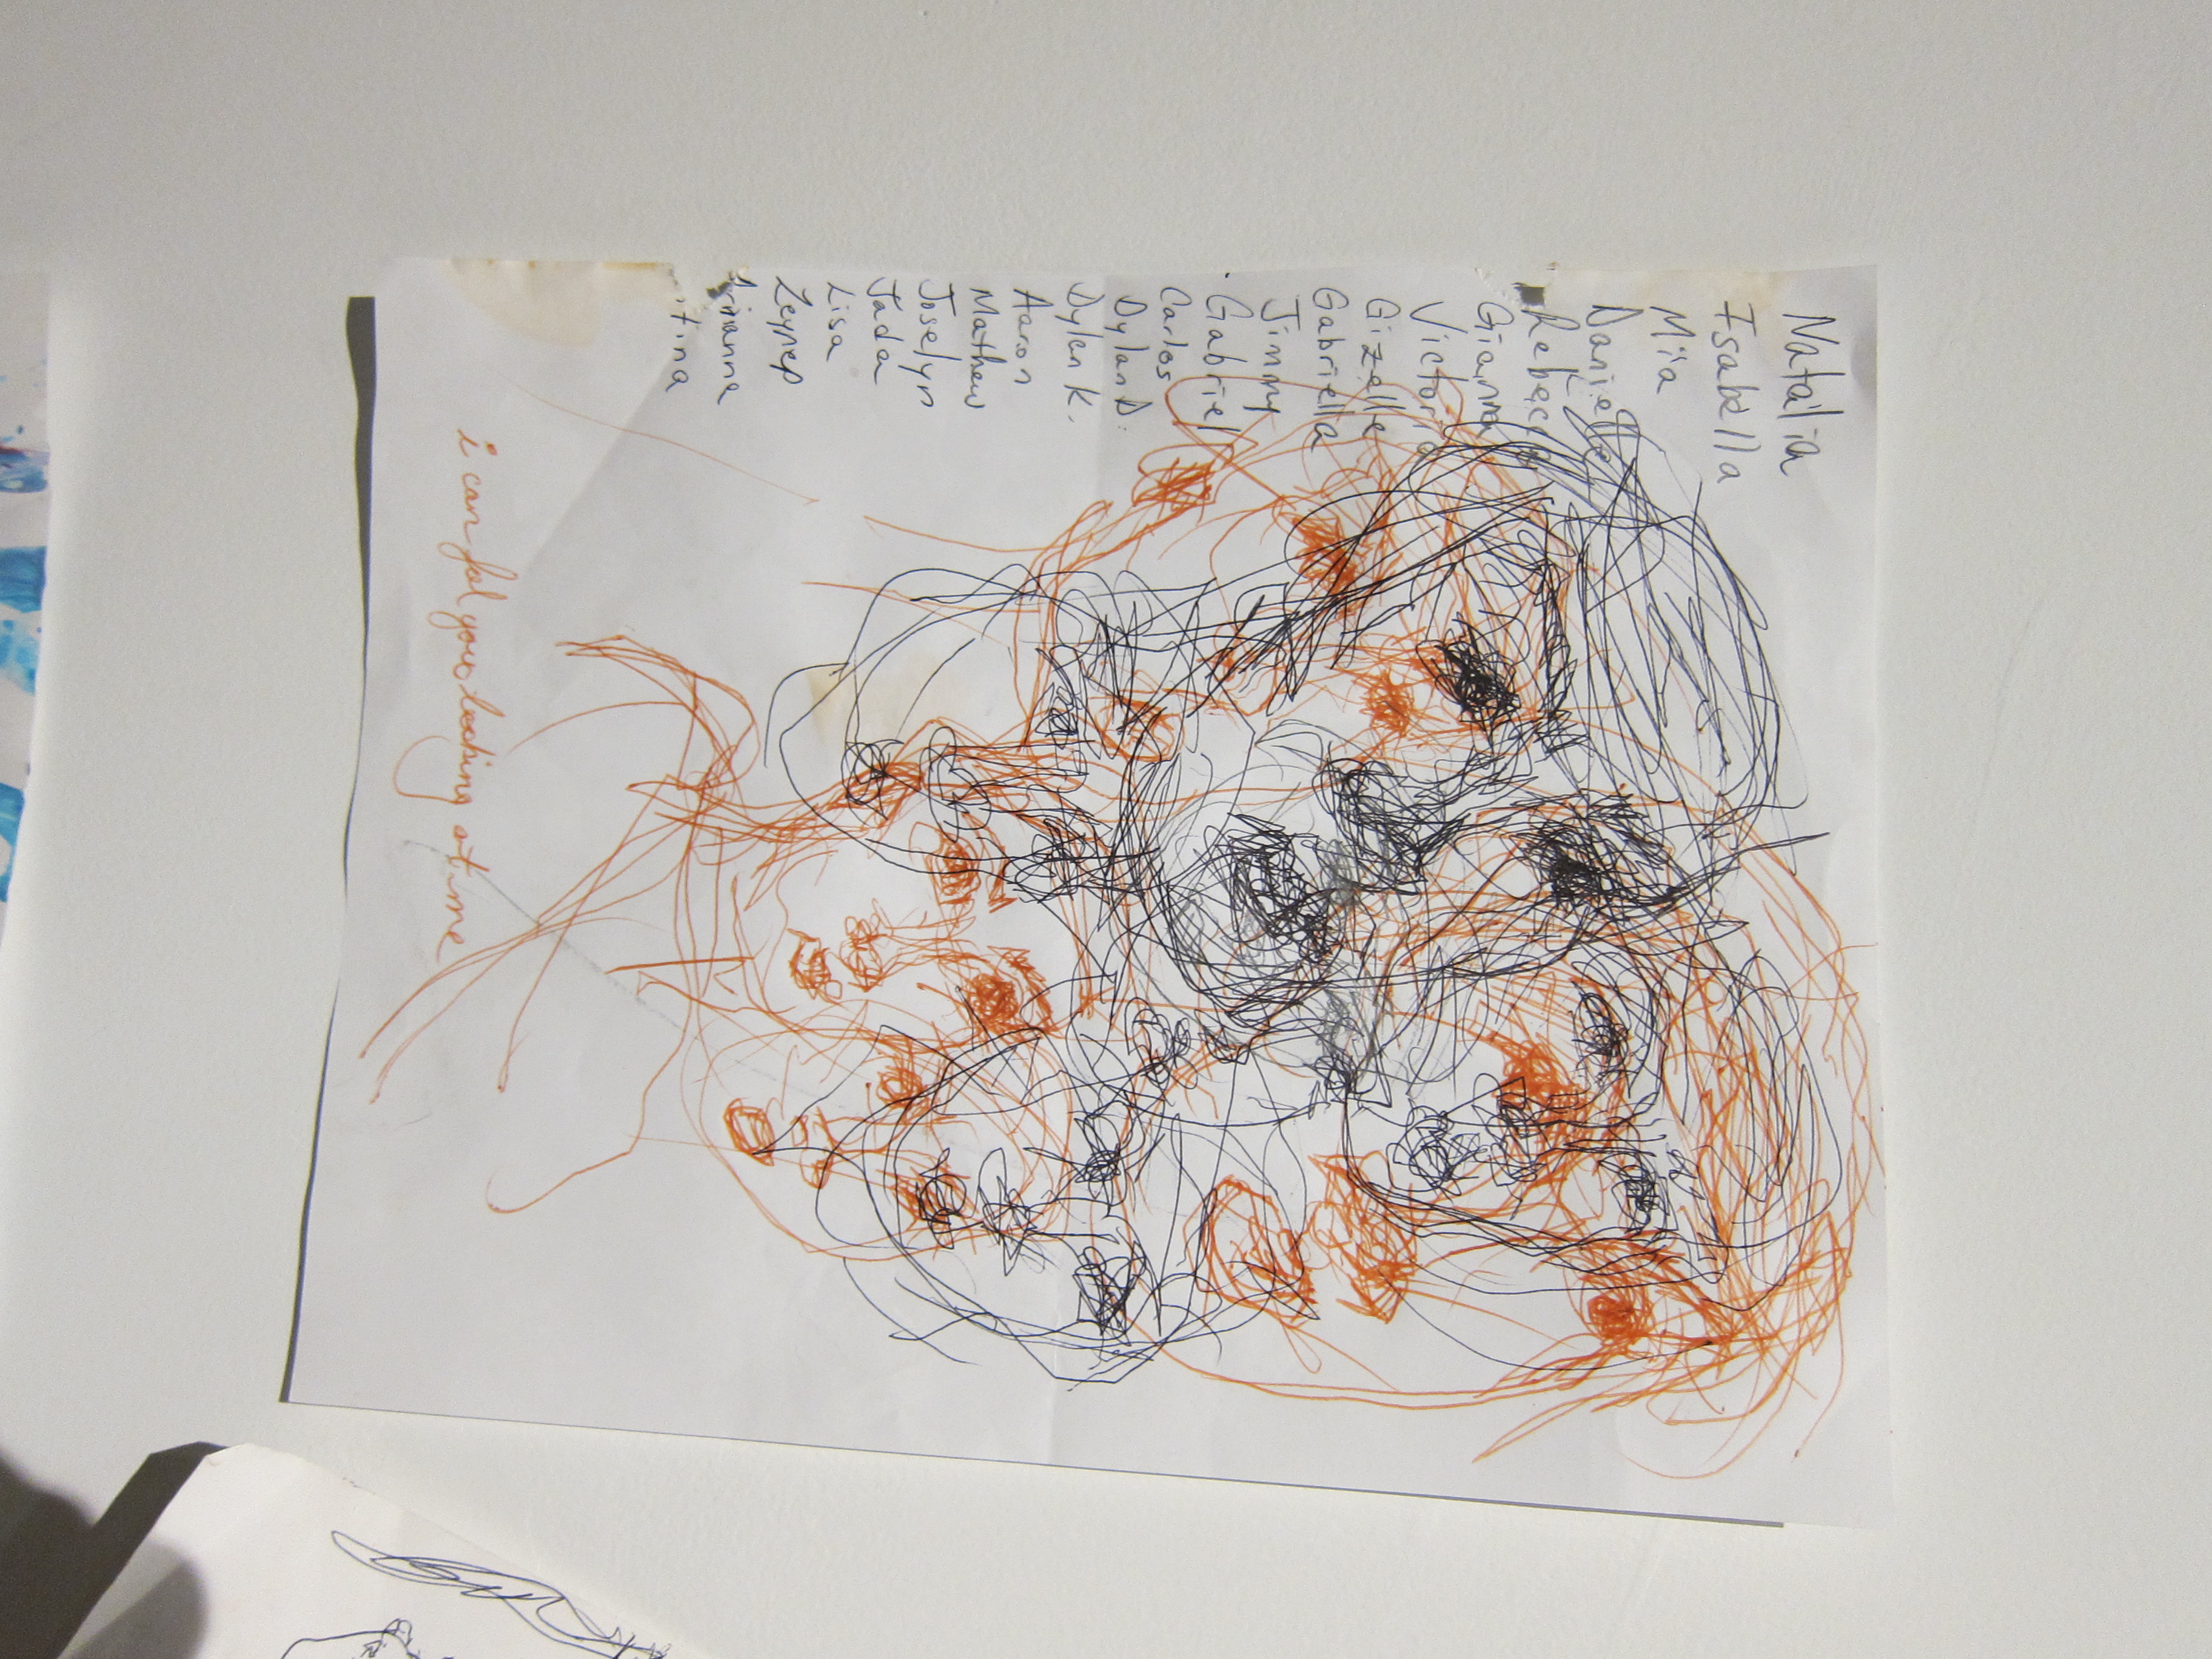 Natalia
Isabella
Mia
Danielle
Rebecca
Gianna
Victoria
Gizelle
Gabriella
Jimmy
Gabriel
Carlos
Dylan D.
Dylan K.
Aaron
Mathew
Joselyn
Jada
Lisa
Zeynep
Arianna
itina
i can feel you looking at me